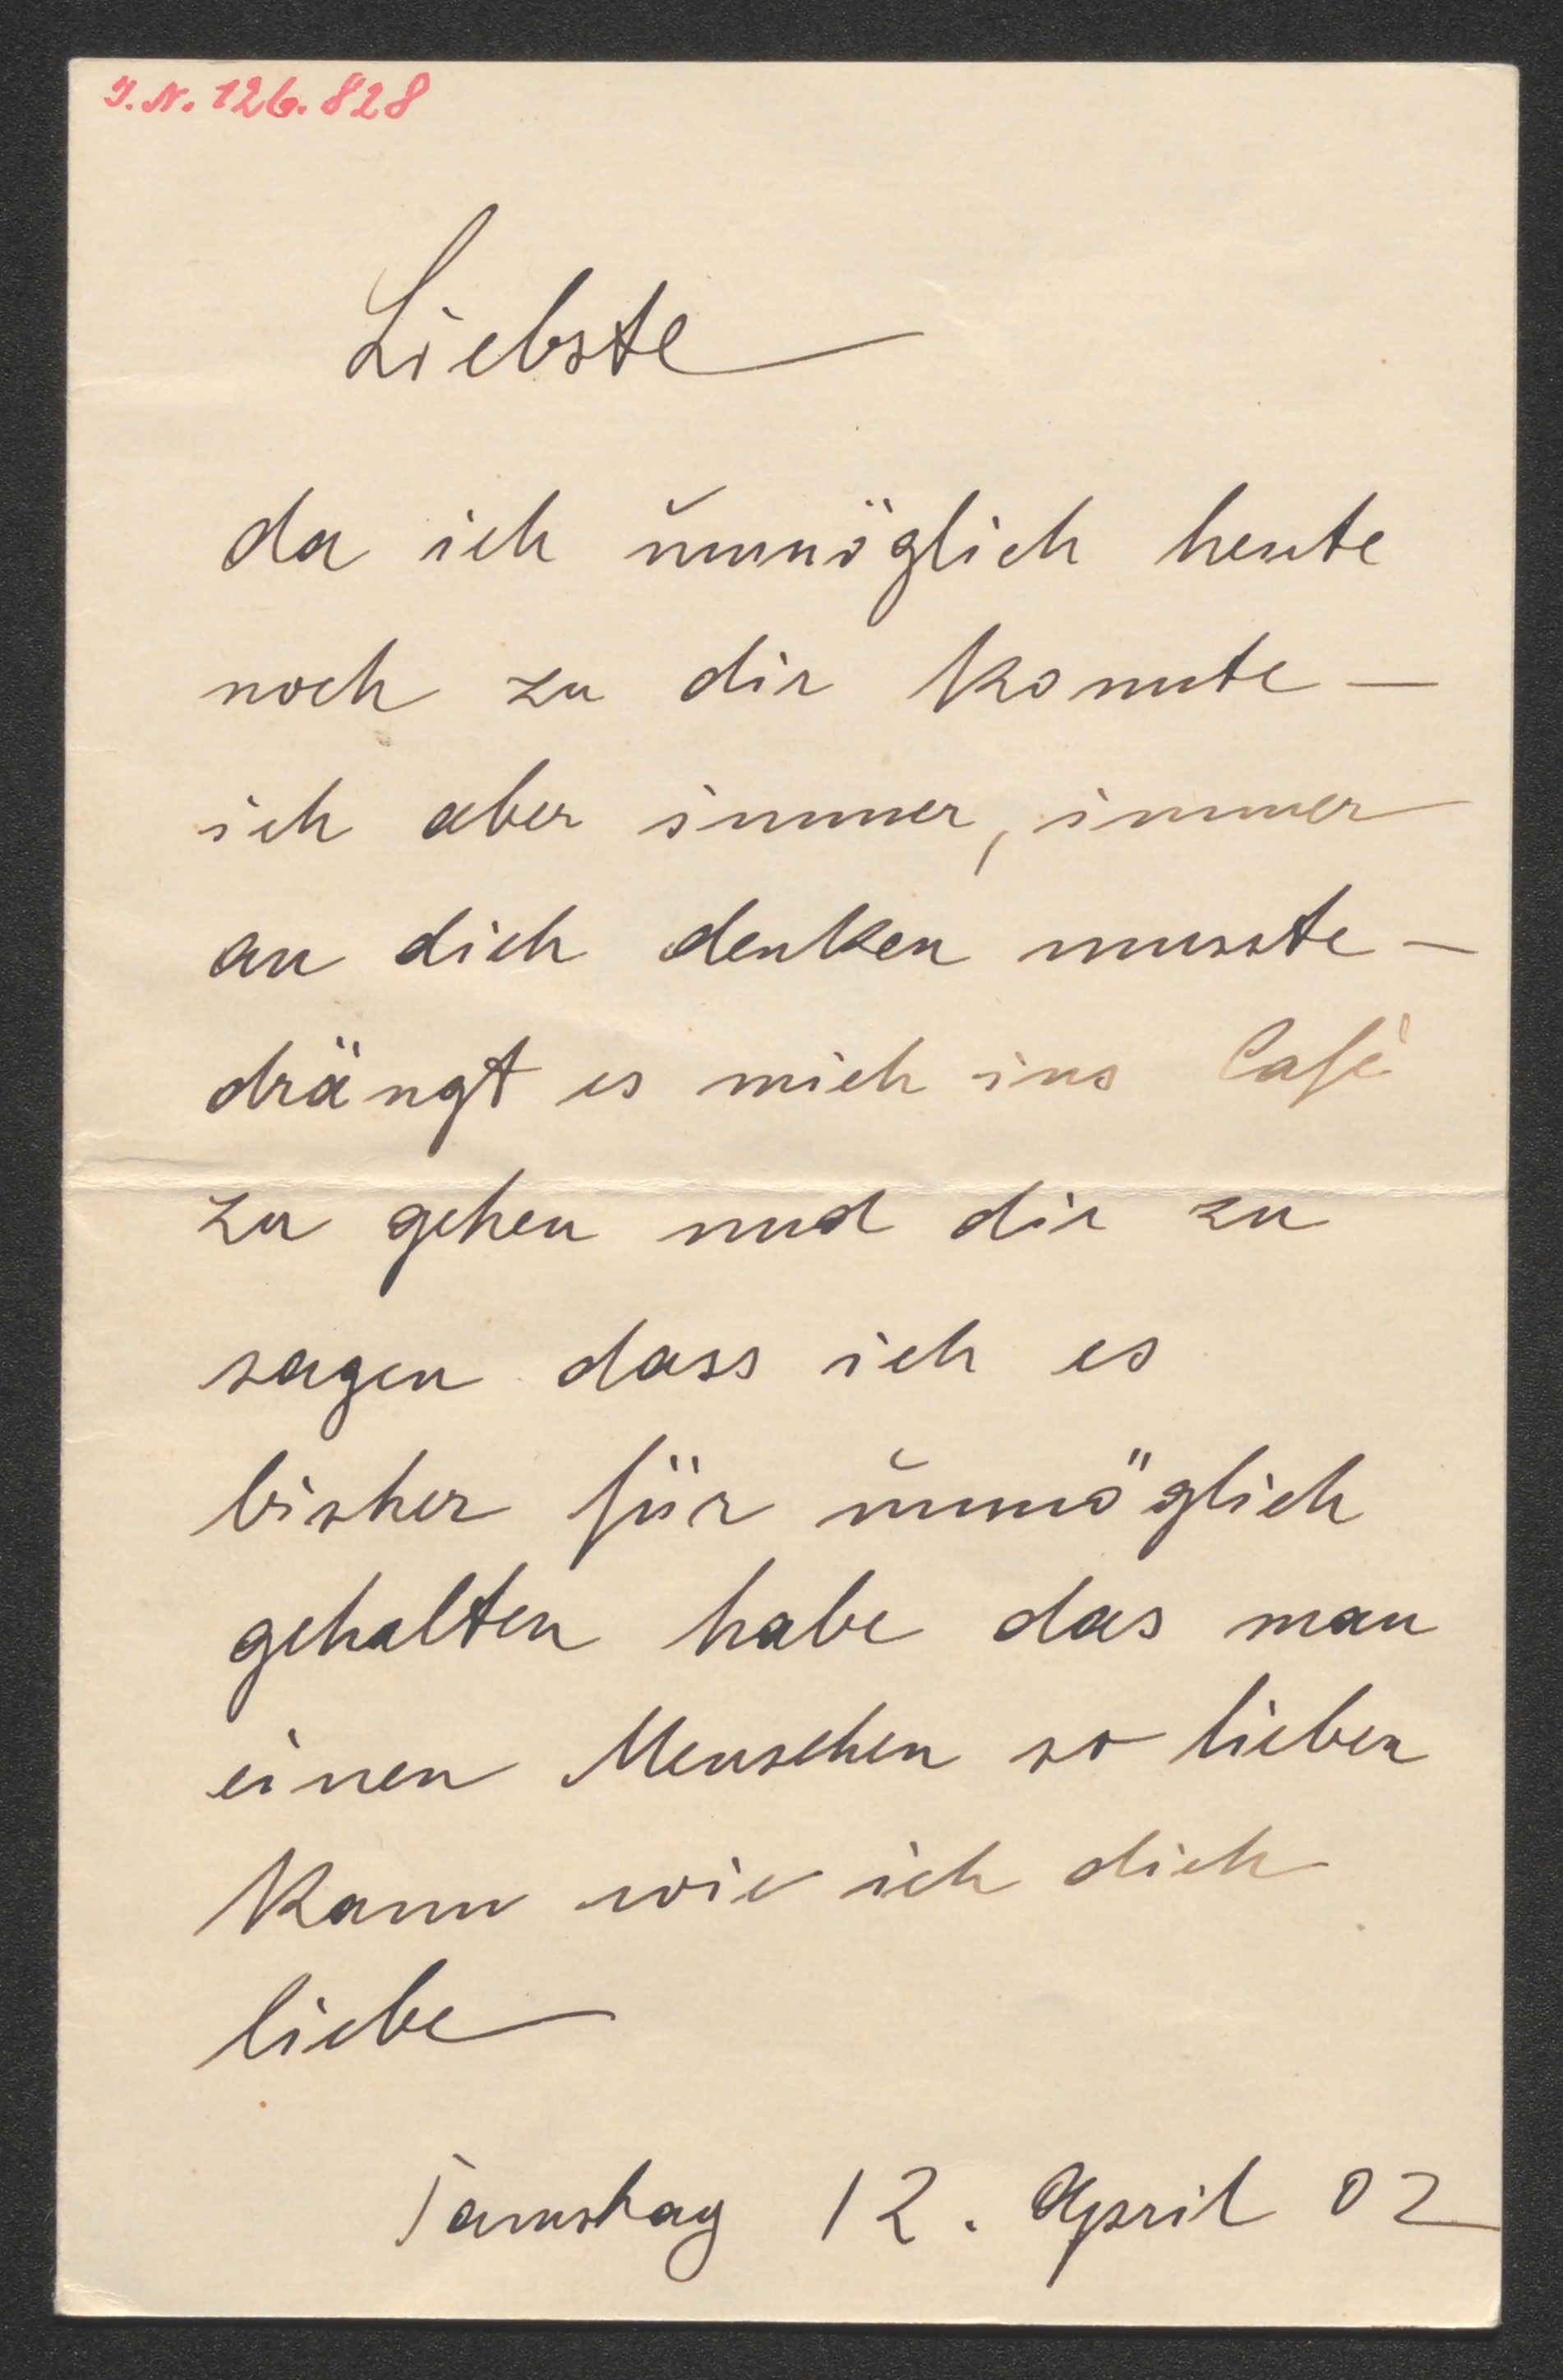 I.N. 126.828
Liebste
da ich unmöglich heute
noch zu dir konnte —
ich aber immer, immer
an dich denken musste —
drängt es mich ins Café
zu gehen und dir zu
sagen dass ich es
bisher für unmöglich
gehalten habe das man
einen Menschen so lieben
kann wie ich dich
liebe
Samstag 12. April 02